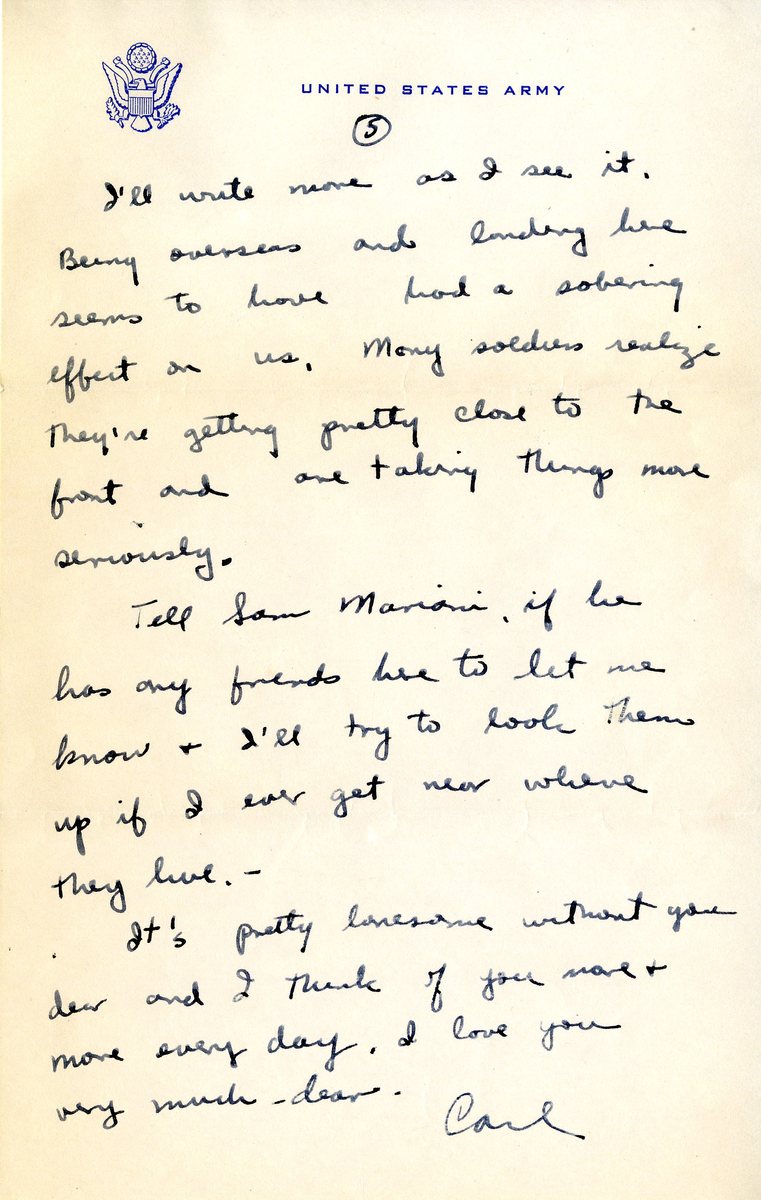 UNITED STATES ARMY
5
I'll write more as I see it.
Being overseas and landing here
seems to have had a sobering
effect on us. Many soldiers realize
they're getting pretty close to the
front and are taking things more
seriously.
Tell Sam Mariani, if he
has any friends here to let me
know + I'll try to look them
up if I ever get near where
they live. -
It's pretty lonesome without you
dear and I think of you more +
more every day. I love you
very much - dear.
Carl